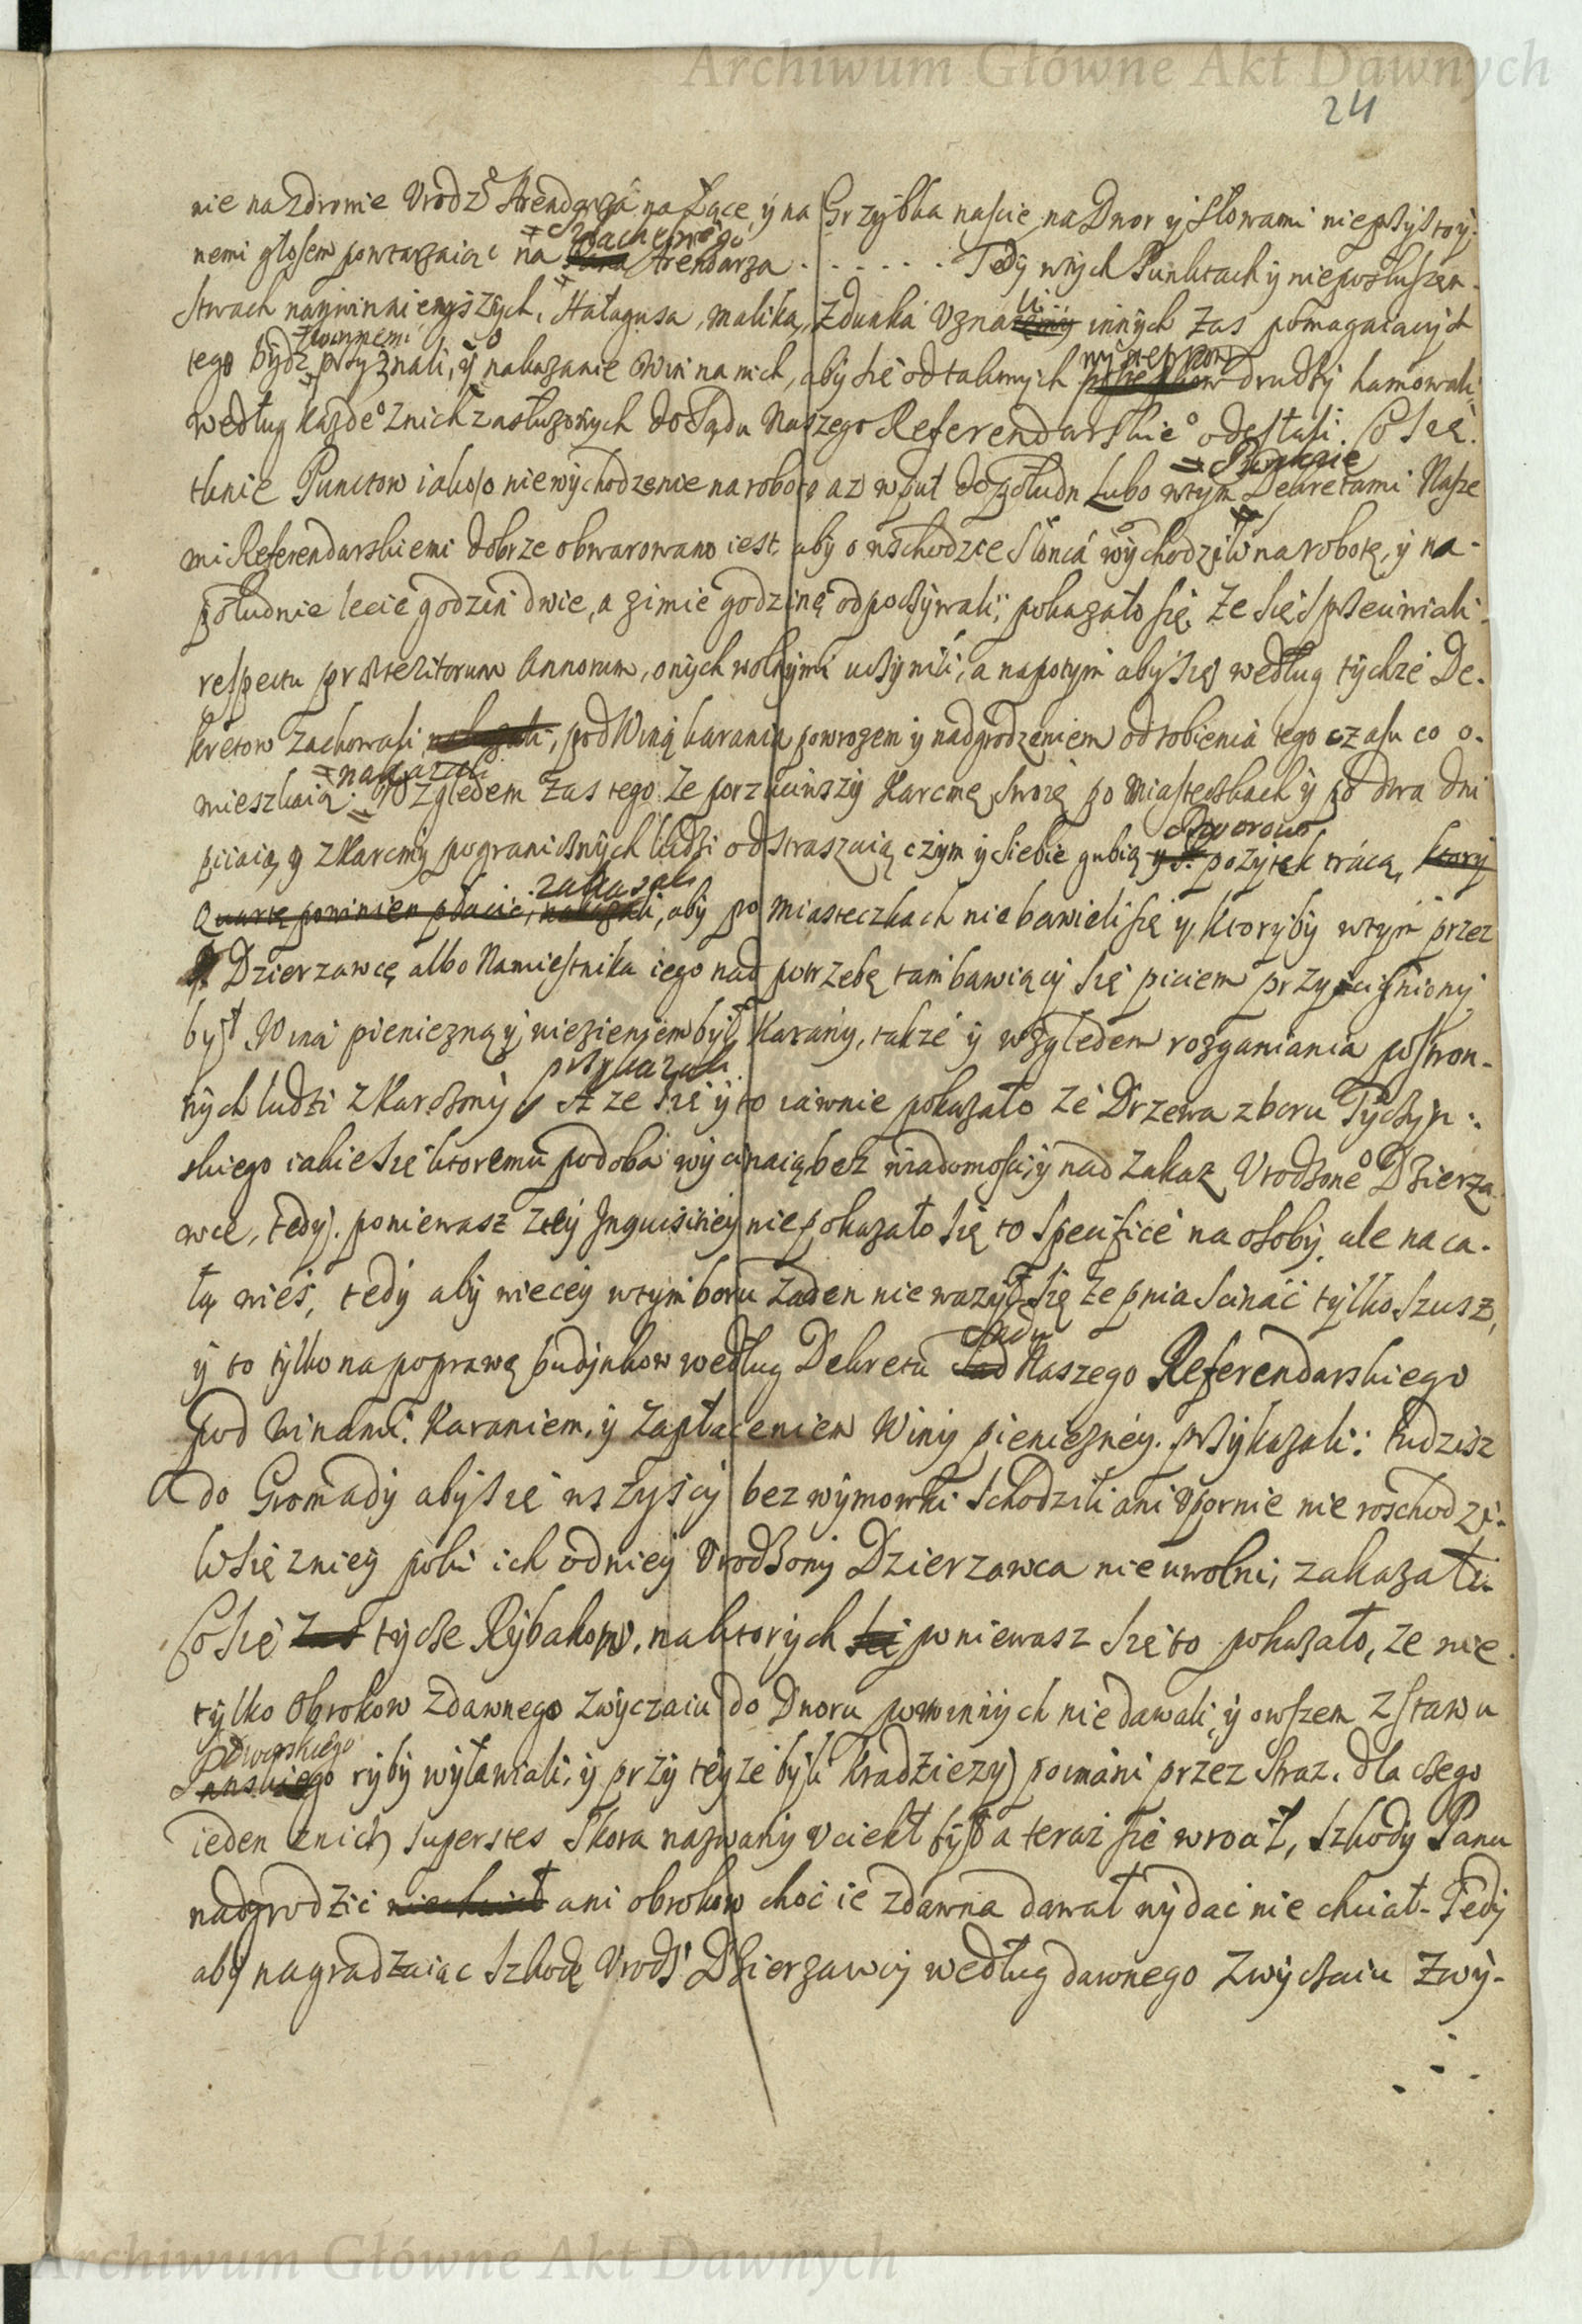 Archiwum Główne Akt Dawnych
24
nie na Zdrowie Urodz⁰ Arendarza na Łące, y na Grzybka naście, na Dwor y słowami nieprzystoy-
= Szlachetnego
nemi głosem powtarzaiąc na Pana Arendarza . . . . . . Tedy w tych Punktach y nieposłuszen-
li
stwach naywinnieyszych, Hałagusa, Malika, Zdunka Uzna innych zas pomagaiących
= winnemi
tego bydz przyznali, y o nakazanie Win na nich, aby się od takowych
wystempkow
drudzy hamowali,
według kazde⁰ z nich zasłuzonych do Sądu Naszego Referendarskie⁰ odesłali. Co się
= Prawnie
tknie Punctow iako o niewychodzenie na robotę az w puł do południa Lubo w tym Dekretami Nasze
mi Referendarskiemi dobrze obwarowano iest aby o wschodzie słonca wychodzili na robotę, y na-
południe lecie godzin dwie, a zimie godzinę odpoczywali; pokazało się, ze się sprzeciwiali
respectu praeteritorum Annorum, onych wolnymi uczynili, a napotym aby się według tychze De-
kretow zachowali nakazali, pod Winą karania powrozem y nadgrodzeniem odrobienia tego czasu co o-
= nakazali
mieszkaią. Względem zas tego ze porzuciwszy Karcmę swoię po Miasteczkach y po dwa dni
Dworowi
piiaią, y z Karcmy pogranicznych ludzi odstraszaią czym y siebie gubią y pozytek trácą, ktory
zakazali
Quartę powinien płacić, nakazali, aby po Miasteczkach nie bawieli się y, ktoryby w tym przez
Dzierzawcę albo Namiestnika iego nad potrzebę tam bawiący się piciem przyscigniony
był Winą pieniezną y więzieniem był Karany, takze y względem rozganiania postron-
przykazali
nych ludzi z Karczmy. A ze się y to iawnie pokazało ze Drzewa z boru Tyczyn:
skiego iakie się ktoremu podoba wycinaią bez wiadomosci y nad zakaz Urodzone⁰ Dzierza
wce, Tedy. poniewasz z tey Inquisitiey nie pokazało się to specifice na osoby, ale na ca-
łą wieś, tedy aby wiecey w tym boru zaden nie wazył się ze pnia scinać tylko szusz,
Sądu
y to tylko na poprawę budynkow według Dekretu Sąd Naszego Referendarskiego
pod Winami. Karaniem, y zapłaceniem Winy pieniezney. przykazali: tudzisz
A do Gromady aby się wszyscy bez wymowki schodzili ani Upornie nie roschodzi-
li się z niey poki ich od niey Urodzony Dzierzawca nie uwolni, zakazali
Co się zas tycze Rybakow. na ktorych poniewasz się to pokazało, ze nie
tylko Obrokow zdawnego zwyczaiu do Dworu powinnych nie dawali, y owszem z stawu
Dworskiego
Panskiego ryby wyławiali, y przy teyze byli Kradziezy poimani przez straz, dla czego
ieden z nich superstes Skora nazwany Uciekł był a teraz się wrocił, szkody Panu
nadgrodzić niechciał ani obrokow choć ie zdawna dawał wydać nie chciał. Tedy
aby nagradzaiąc szkodę Urodz. Dzierzawcy według dawnego zwyczaiu zwy-
Archiwum Główne Akt Dawnych